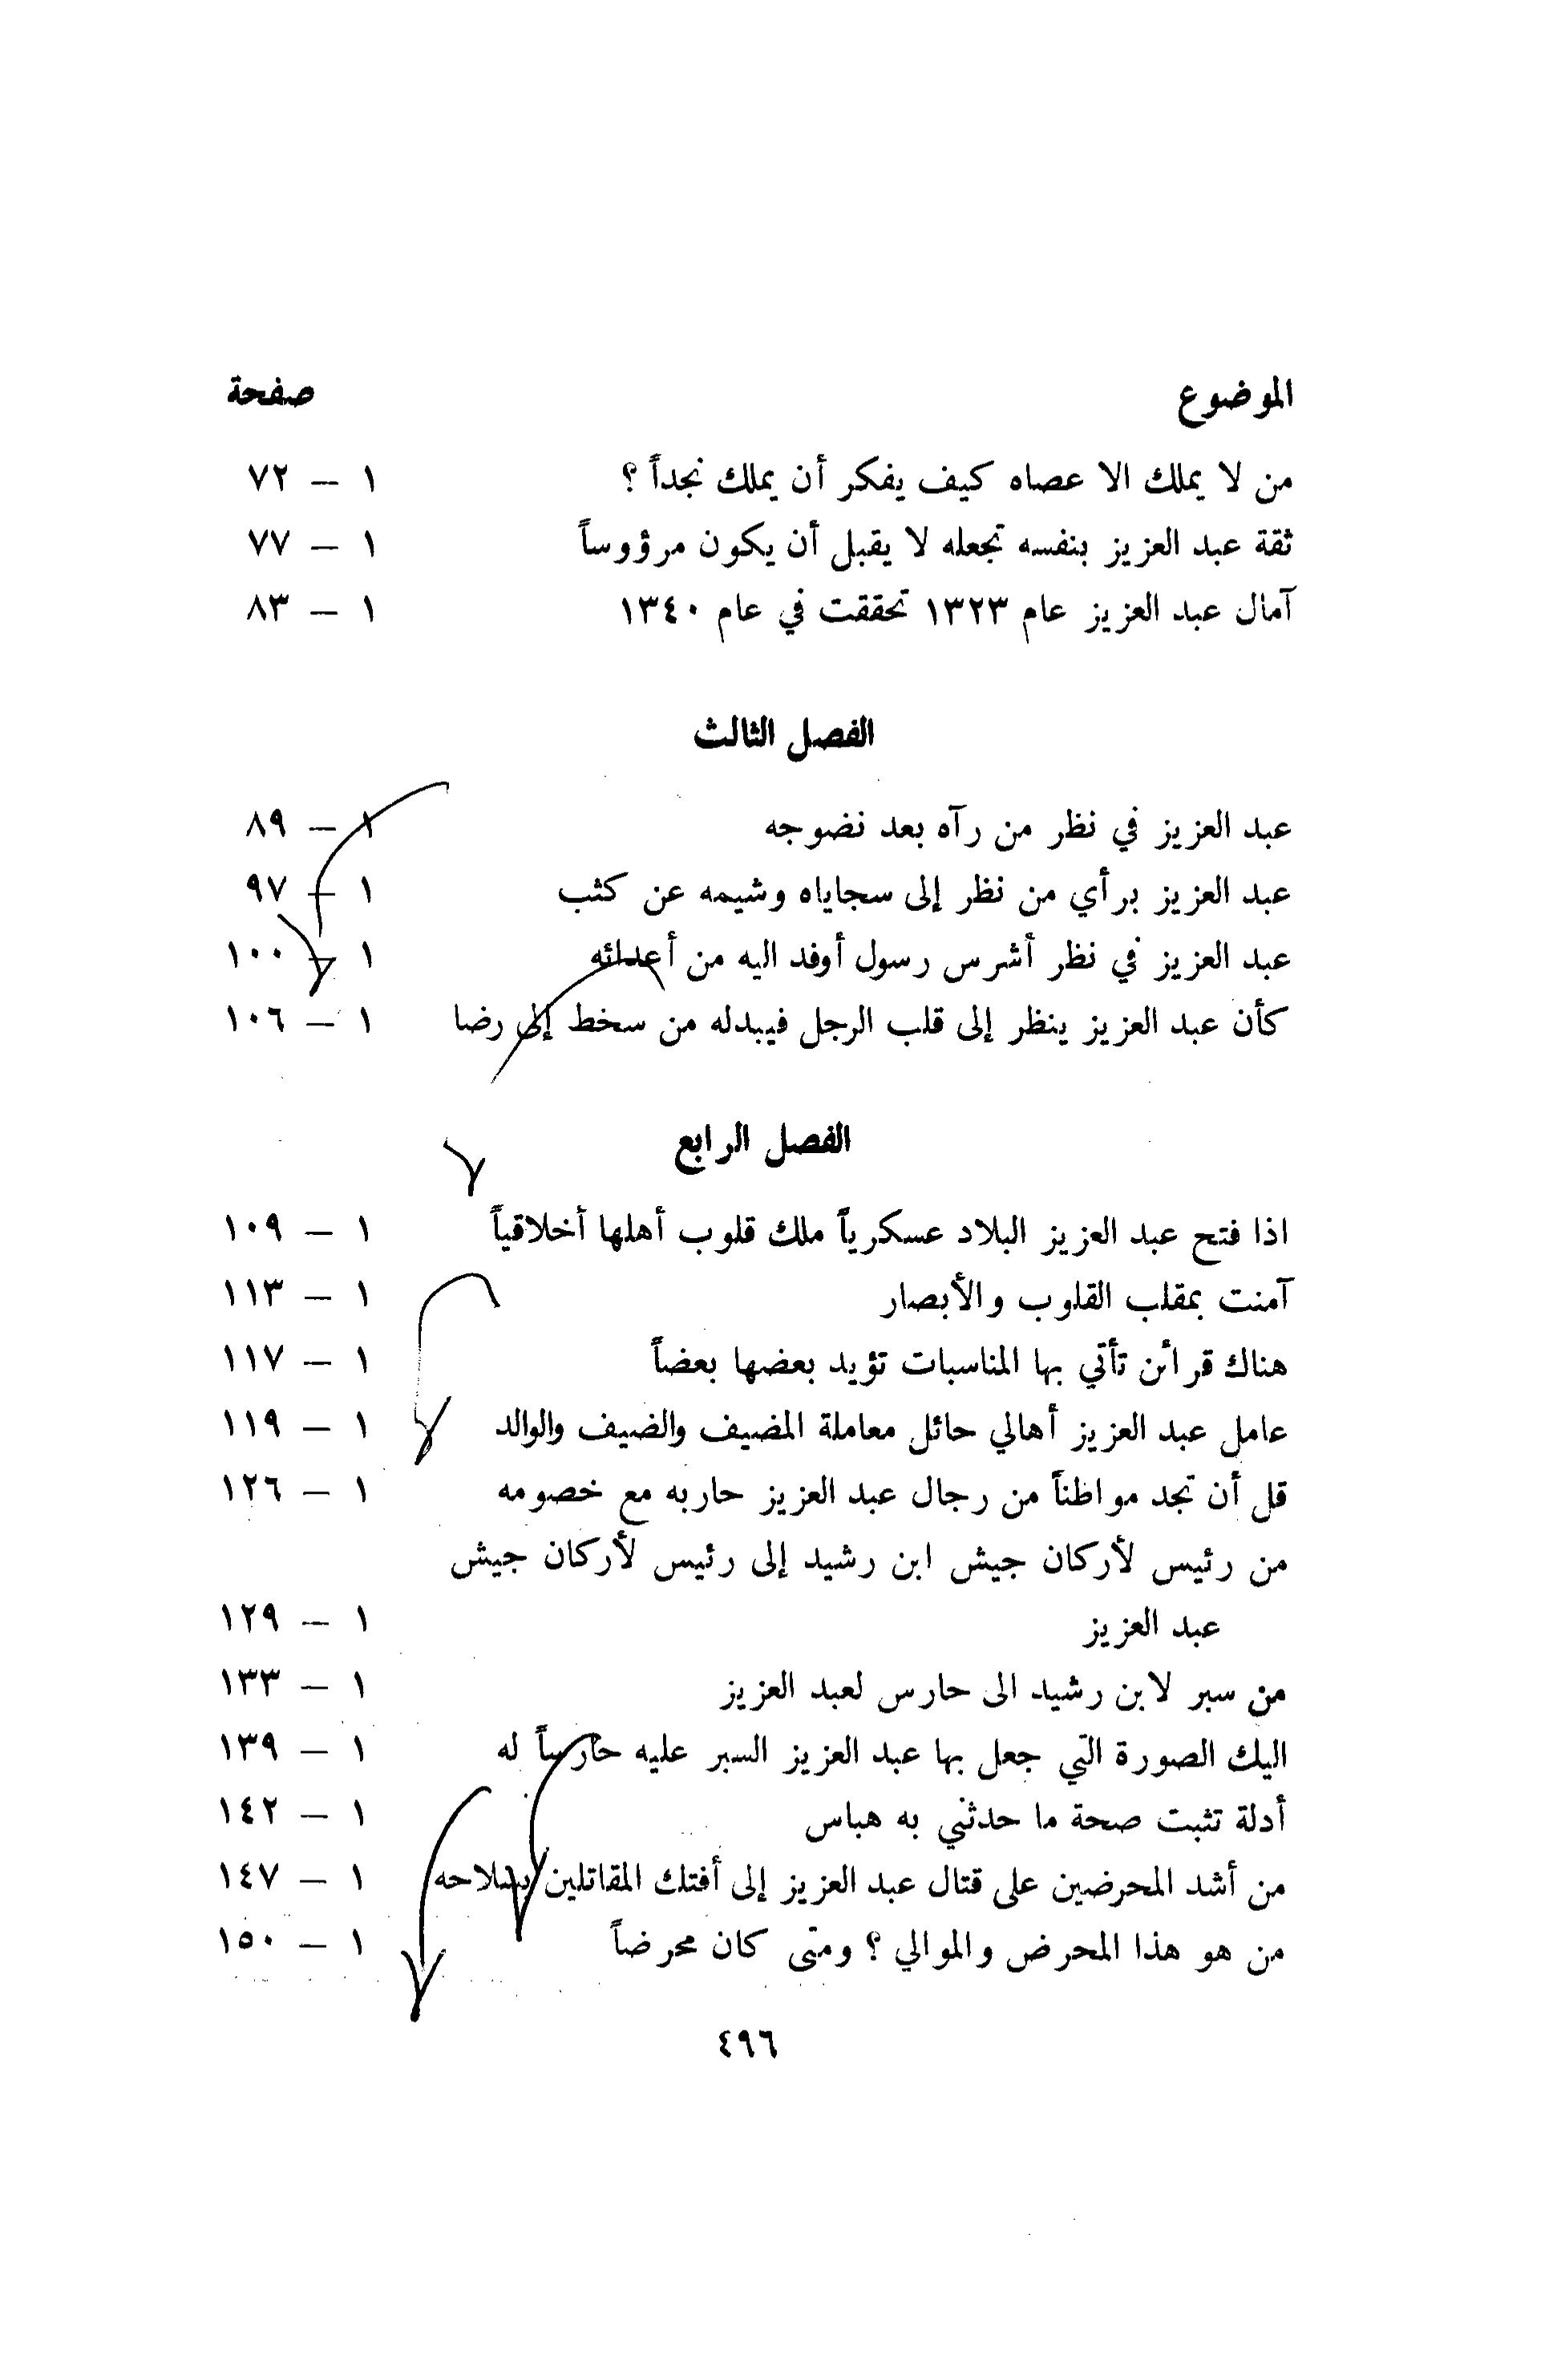 الموضوع صفحة
من لا يملك الا عصاه كيف يفكر أن يملك نجداً ؟ ١ – ٧٢
ثقة عبد العزيز بنفسه تجعله لا يقبل أن يكون مرؤوساً ١ – ٧٧
آمال عبد العزيز عام ١٣٢٣ تحققت في عام ١٣٤٠ ١ – ٨٣
الفصل الثالث
عبد العزيز في نظر من رآه بعد نضوجه ١ – ٨٩
عبد العزيز برأي من نظر إلى سجاياه وشيمه عن كثب ١ – ٩٧
عبد العزيز في نظر أشرس رسول أوفد اليه من أعدائه ١ – ١٠٠
كأن عبد العزيز ينظر إلى قلب الرجل فيبدله من سخط إلى رضا ١ – ١٠٦
الفصل الرابع
اذا فتح عبد العزيز البلاد عسكرياً ملك قلوب أهلها أخلاقياً ١ – ١٠٩
آمنت بمقلب القلوب والأبصار ١ – ١١٣
هناك قرائن تأتي بها المناسبات تؤيد بعضها بعضاً ١ – ١١٧
عامل عبد العزيز أهالي حائل معاملة المضيف والضيف والوالد ١ – ١١٩
قل أن تجد مواطناً من رجال عبد العزيز حاربه مع خصومه ١ – ١٢٦
من رئيس لأركان جيش ابن رشيد إلى رئيس لأركان جيش
عبد العزيز ١ – ١٢٩
من سبر لابن رشيد الى حارس لعبد العزيز ١ – ١٣٣
اليك الصورة التي جعل بها عبد العزيز السبر عليه حارساً له ١ – ١٣٩
أدلة تثبت صحة ما حدثني به هباس ١ – ١٤٢
من أشد المحرضين على قتال عبد العزيز إلى أفتك المقاتلين بسلاحه ١ – ١٤٧
من هو هذا المحرض والموالي ؟ ومتى كان محرضاً ١ – ١٥٠
٤٩٦